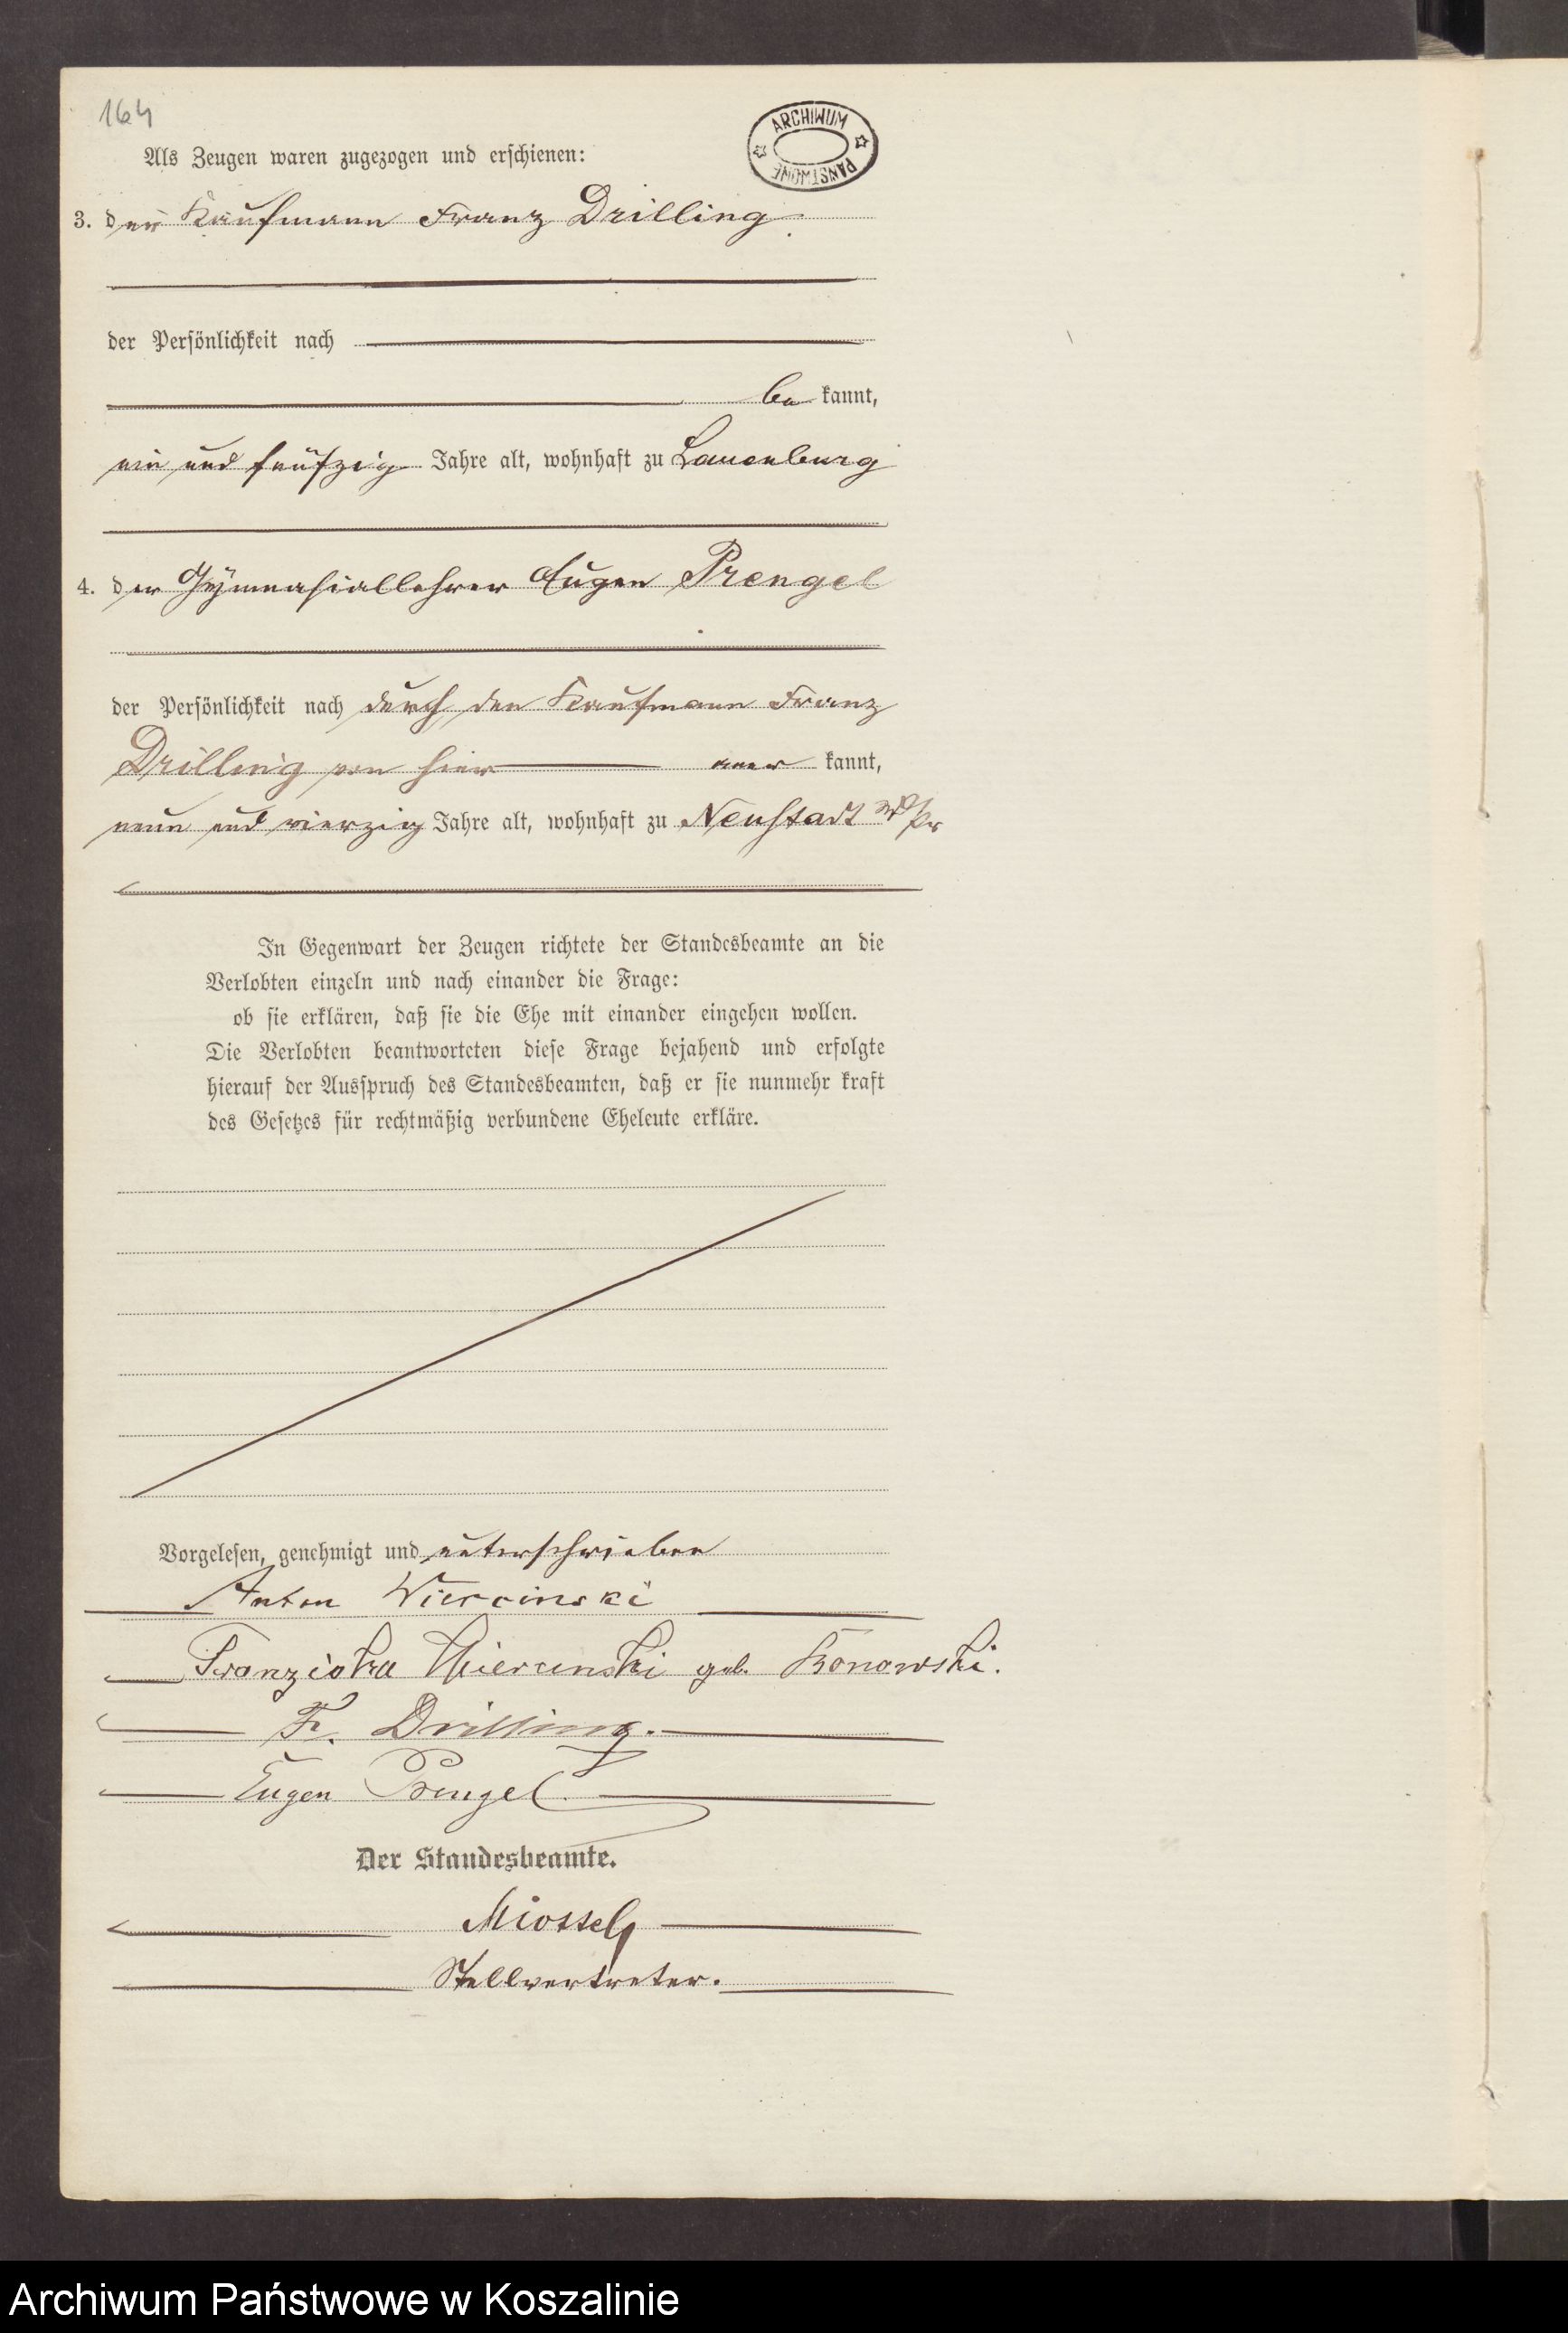 164
ARCHIWUM PAŃSTWOWE
Als Zeugen waren zugezogen und erschienen:
3. der Kaufmann Franz Drilling
der Persönlichkeit nach
be kannt,
ein und fünfzig Jahre alt, wohnhaft zu Lauenburg
4. der Gymnasiallehrer Eugen Prengel
der Persönlichkeit nach durch den Kaufmann Franz
Drilling von hier aner kannt,
neun und vierzig Jahre alt, wohnhaft zu Neustadt W/Pr
In Gegenwart der Zeugen richtete der Standesbeamte an die
Verlobten einzeln und nach einander die Frage:
ob sie erklären, daß sie die Ehe mit einander eingehen wollen.
Die Verlobten beantworteten diese Frage bejahend und erfolgte
hierauf der Ausspruch des Standesbeamten, daß er sie nunmehr kraft
des Gesetzes für rechtmäßig verbundene Eheleute erkläre.
Vorgelesen, genehmigt und unterschrieben
Anton Wiercinski
Franziska Wiercinski geb. Konowski.
Fr. Drilling.
Eugen Prengel.
Der Standesbeamte.
Stellvertreter.
Archiwum Państwowe w Koszalinie